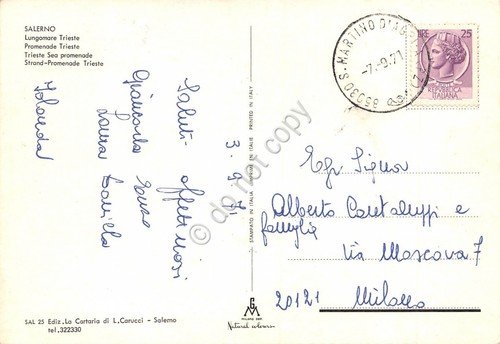 SALERNO
Lungomare Trieste
Promenade Trieste
Trieste Sea promenade
Strand-Promenade Trieste
85030 S. MARTINO D'AGRI
-7.-9.71
LIRE 25
REPUBBLICA
ITALIANA
3.9.71
Saluti affettuosi
Giancarlo Enzo
Laura Daniela
Jolanda
STAMPATO IN ITALIA
PRINTED IN ITALY
do not copy
Egr. Signor
Alberto Cantaluppi e
famiglia
Via Moscova 7
20121 Milano
SAL 25 Ediz. La Cartaria di L. Carucci - Salerno
tel. 322330
GM
Natural colours